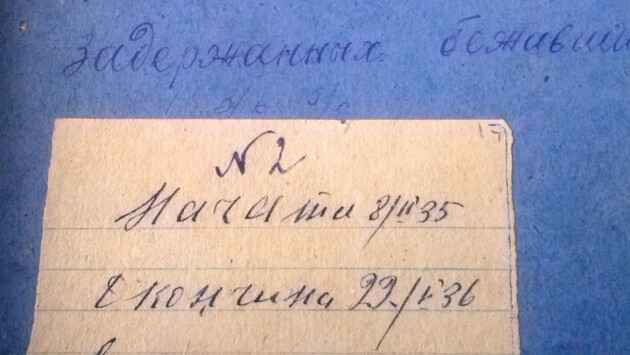 задержанных бежавши
17
N 2
Начата 8/II 35
Окончина 22/II 36